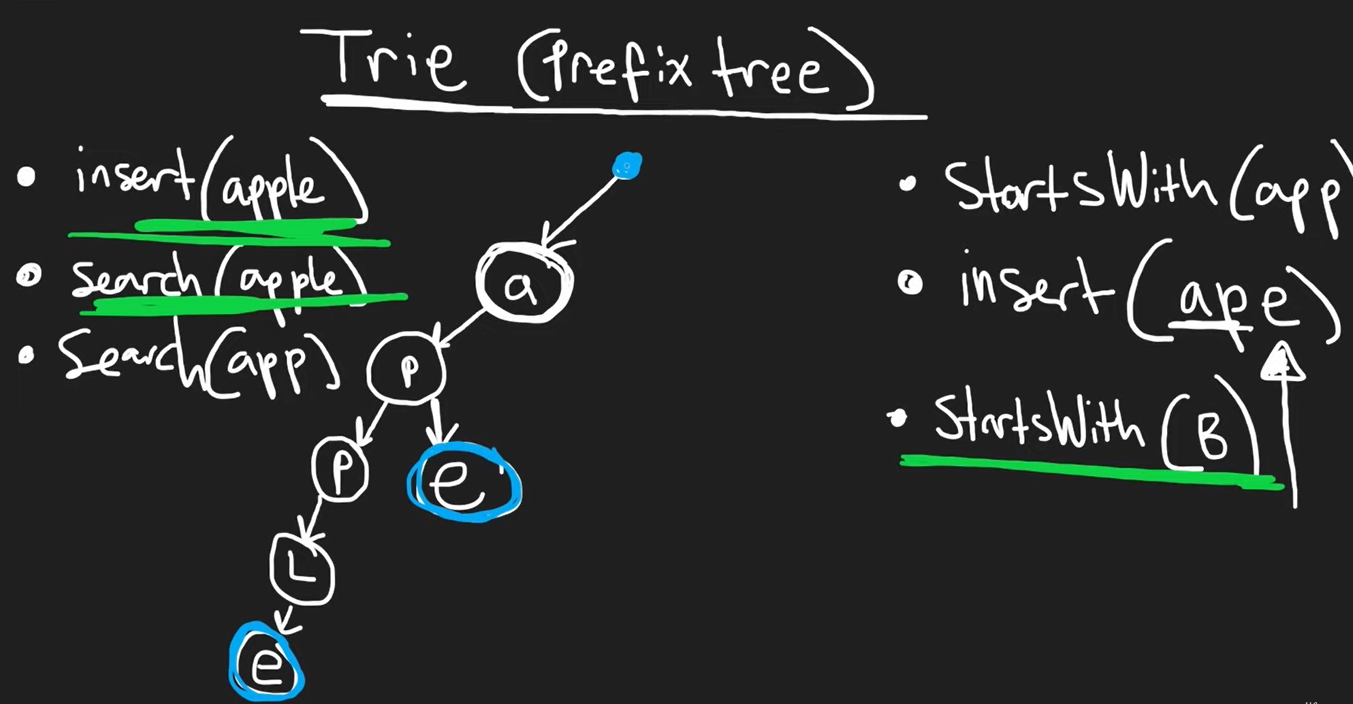 Trie (Prefix tree)
• insert(apple)
• search(apple)
• Search(app)
a
P
P
e
L
e
• StartsWith(app
• insert(ape)
• StartsWith(B)